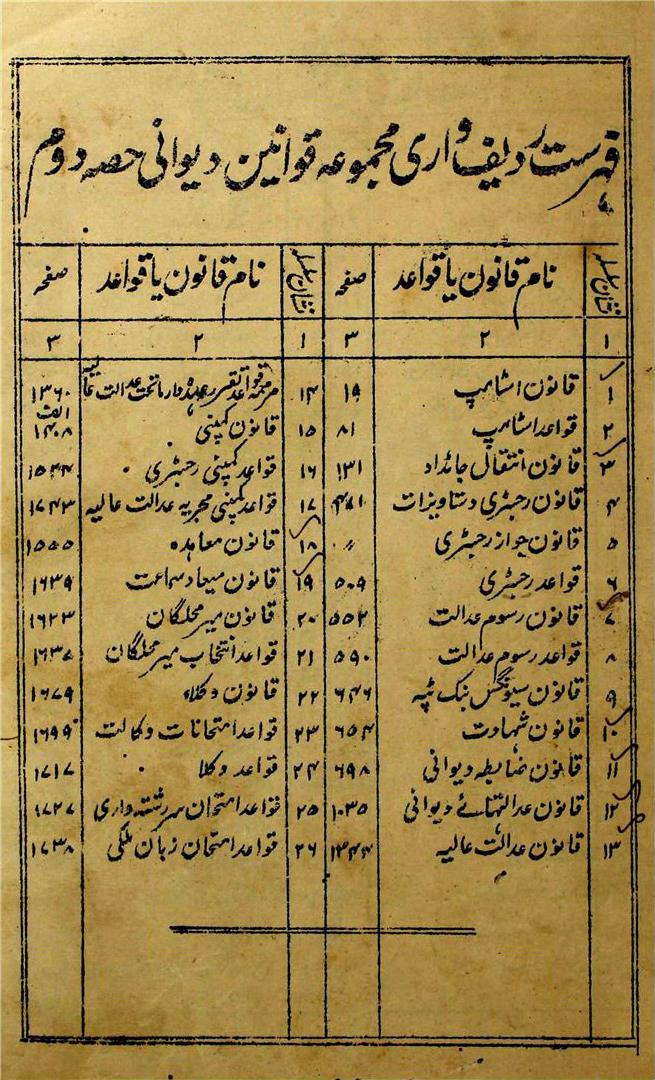 فہرست ردیف واری مجموعہ قوانین دیوانی حصہ دوم
نشان سلسلہ نام قانون یا قواعد صفحہ نشان سلسلہ نام قانون یا قواعد صفحہ
۱ ۲ ۳ ۱ ۲ ۳
۱ قانون اسٹامپ ۱۹ ۱۴ قواعد تقرر عہدہ داران ماتحت عدالت عالیہ ۱۳۶۰ الف
۲ قواعد اسٹامپ ۸۱ ۱۵ قانون کمپنی ۱۴۰۸
۳ قانون انتقال جائداد ۱۳۱ ۱۶ قواعد کمپنی رجسٹری ۱۵۴۴
۴ قانون رجسٹری دستاویزات ۱۷ قواعد کمپنی مجریہ عدالت عالیہ ۱۷۴۳
۵ قانون جواز رجسٹری ۱۸ قانون معاہدہ ۱۵۵۵
۶ قواعد رجسٹری ۵۰۹ ۱۹ قانون میعاد سماعت ۱۶۳۹
۷ قانون رسوم عدالت ۵۵۲ ۲۰ قانون میر محلگان ۱۶۲۳
۸ قواعد رسوم عدالت ۵۹۰ ۲۱ قواعد انتخاب میر محلگان ۱۶۳۵
۹ قانون سیونگس بنک ٹپہ ۶۴۶ ۲۲ قانون وکلاء ۱۶۷۹
۱۰ قانون شہادت ۶۵۴ ۲۳ قواعد امتحانات وکالت ۱۶۹۹
۱۱ قانون ضابطہ دیوانی ۶۹۸ ۲۴ قواعد وکلا ۱۷۱۷
۱۲ قانون عدالتہائے دیوانی ۱۰۳۵ ۲۵ قواعد امتحان سررشتہ داری ۱۷۲۷
۱۳ قانون عدالت عالیہ ۱۳۴۴ ۲۶ قواعد امتحان زبان ملکی ۱۷۳۸